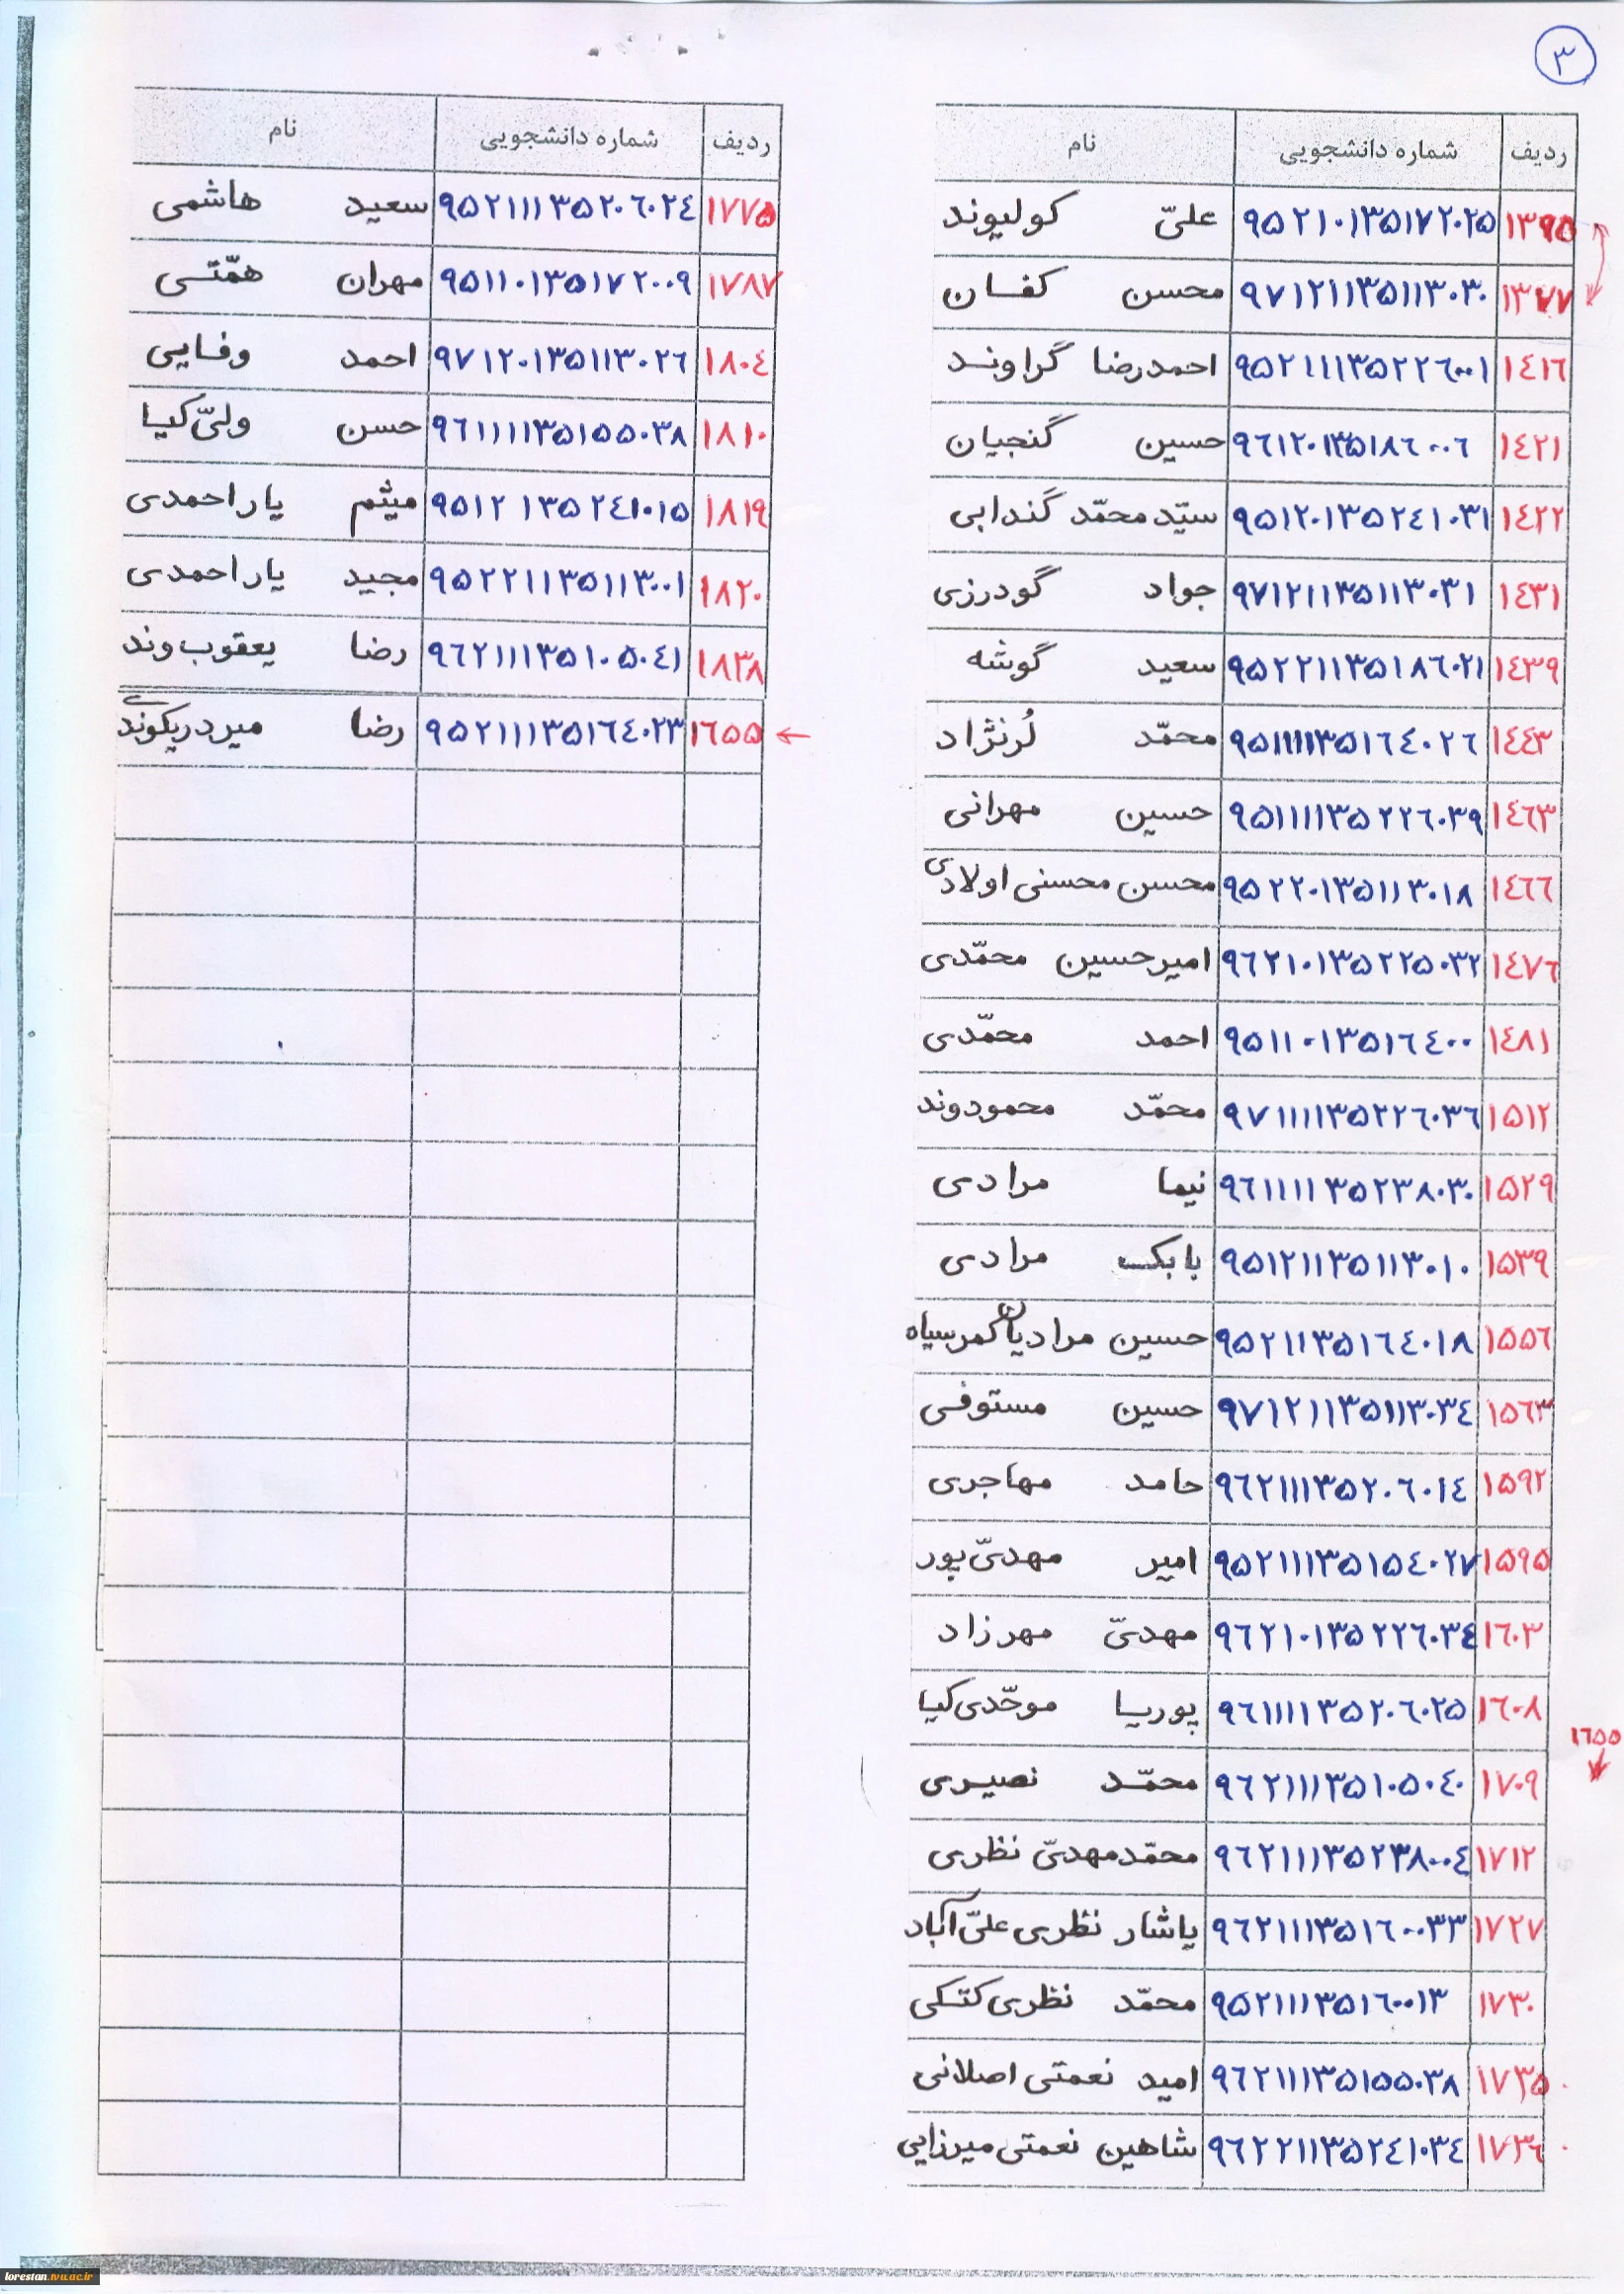 ۳
ردیف شماره دانشجویی نام
۱۳۹۵ ۹۵۲۱۰۱۳۵۱۷۲۰۲۵ علیّ کولیوند
۱۳۷۷ ۹۷۱۲۱۱۳۵۱۱۳۰۳۰ محسن کفسان
۱۴۱۶ ۹۵۲۱۱۱۳۵۲۲۶۰۰۱ احمدرضا گراوند
۱۴۲۱ ۹۶۱۲۰۱۳۵۱۸۶۰۰۶ حسین گنجیان
۱۴۲۲ ۹۵۱۲۰۱۳۵۲۴۱۰۳۱ سیّد محمّد گندابی
۱۴۳۱ ۹۷۱۲۱۱۳۵۱۱۳۰۳۱ جواد گودرزی
۱۴۳۹ ۹۵۲۲۱۱۳۵۱۸۶۰۲۱ سعید گوشه
۱۴۴۳ ۹۵۱۱۱۱۳۵۱۶۴۰۲۶ محمّد لُرنژاد
۱۴۶۳ ۹۵۱۱۱۱۳۵۲۲۶۰۳۹ حسین مهرانی
۱۴۶۶ ۹۵۲۲۰۱۳۵۱۱۳۰۱۸ محسن محسنی اولادی
۱۴۷۶ ۹۶۲۱۰۱۳۵۲۲۵۰۳۲ امیرحسین محمّدی
۱۴۸۱ ۹۵۱۱۰۱۳۵۱۶۴۰۰ احمد محمّدی
۱۵۱۲ ۹۷۱۱۱۱۳۵۲۲۶۰۳۶ محمّد محمودوند
۱۵۲۹ ۹۶۱۱۱۱۳۵۲۳۸۰۳۰ نیما مرادی
۱۵۳۹ ۹۵۱۲۱۱۳۵۱۱۳۰۱۰ بابک مرادی
۱۵۵۶ ۹۵۲۱۱۳۵۱۶۴۰۱۸ حسین مرادیان کمرسیاه
۱۵۶۳ ۹۷۱۲۱۱۳۵۱۱۳۰۳۴ حسین مستوفی
۱۵۹۲ ۹۶۲۱۱۱۳۵۲۰۶۰۱۴ حامد مهاجری
۱۵۹۵ ۹۵۲۱۱۱۳۵۱۵۴۰۲۷ امیر مهدیّ پور
۱۶۰۳ ۹۶۲۱۰۱۳۵۲۲۶۰۳۴ مهدیّ مهرزاد
۱۶۰۸ ۹۶۱۱۱۱۳۵۲۰۶۰۲۵ پوریا موحّدی کیا
۱۶۵۵
۱۷۰۹ ۹۶۲۱۱۱۳۵۱۰۵۰۴۰ محمّد نصیری
۱۷۱۲ ۹۶۲۱۱۱۳۵۲۳۸۰۰۴ محمّدمهدیّ نظری
۱۷۲۷ ۹۶۲۱۱۱۳۵۱۶۰۰۳۳ یاشار نظری علیّ آباد
۱۷۳۰ ۹۵۲۱۱۱۳۵۱۶۰۰۱۳ محمّد نظری کتکی
۱۷۳۵ ۹۶۲۱۱۱۳۵۱۵۵۰۳۸ امید نعمتی اصلانی
۱۷۳۶ ۹۶۲۲۱۱۳۵۲۴۱۰۳۴ شاهین نعمتی میرزایی
ردیف شماره دانشجویی نام
۱۷۷۵ ۹۵۲۱۱۱۳۵۲۰۶۰۲۴ سعید هاشمی
۱۷۸۷ ۹۵۱۱۰۱۳۵۱۷۲۰۰۹ مهران همّتی
۱۸۰۴ ۹۷۱۲۰۱۳۵۱۱۳۰۲۶ احمد وفایی
۱۸۱۰ ۹۶۱۱۱۱۳۵۱۵۵۰۳۸ حسن ولیّ کیا
۱۸۱۹ ۹۵۱۲ ۱۳۵۲۴۱۰۱۵ میثم یاراحمدی
۱۸۲۰ ۹۵۲۲۱۱۳۵۱۱۳۰۰۱ مجید یاراحمدی
۱۸۳۸ ۹۶۲۱۱۱۳۵۱۰۵۰۴۱ رضا یعقوب وند
۱۶۵۵ ۹۵۲۱۱۱۳۵۱۶۴۰۲۳ رضا میردریکوندی
lorestan.tvu.ac.ir